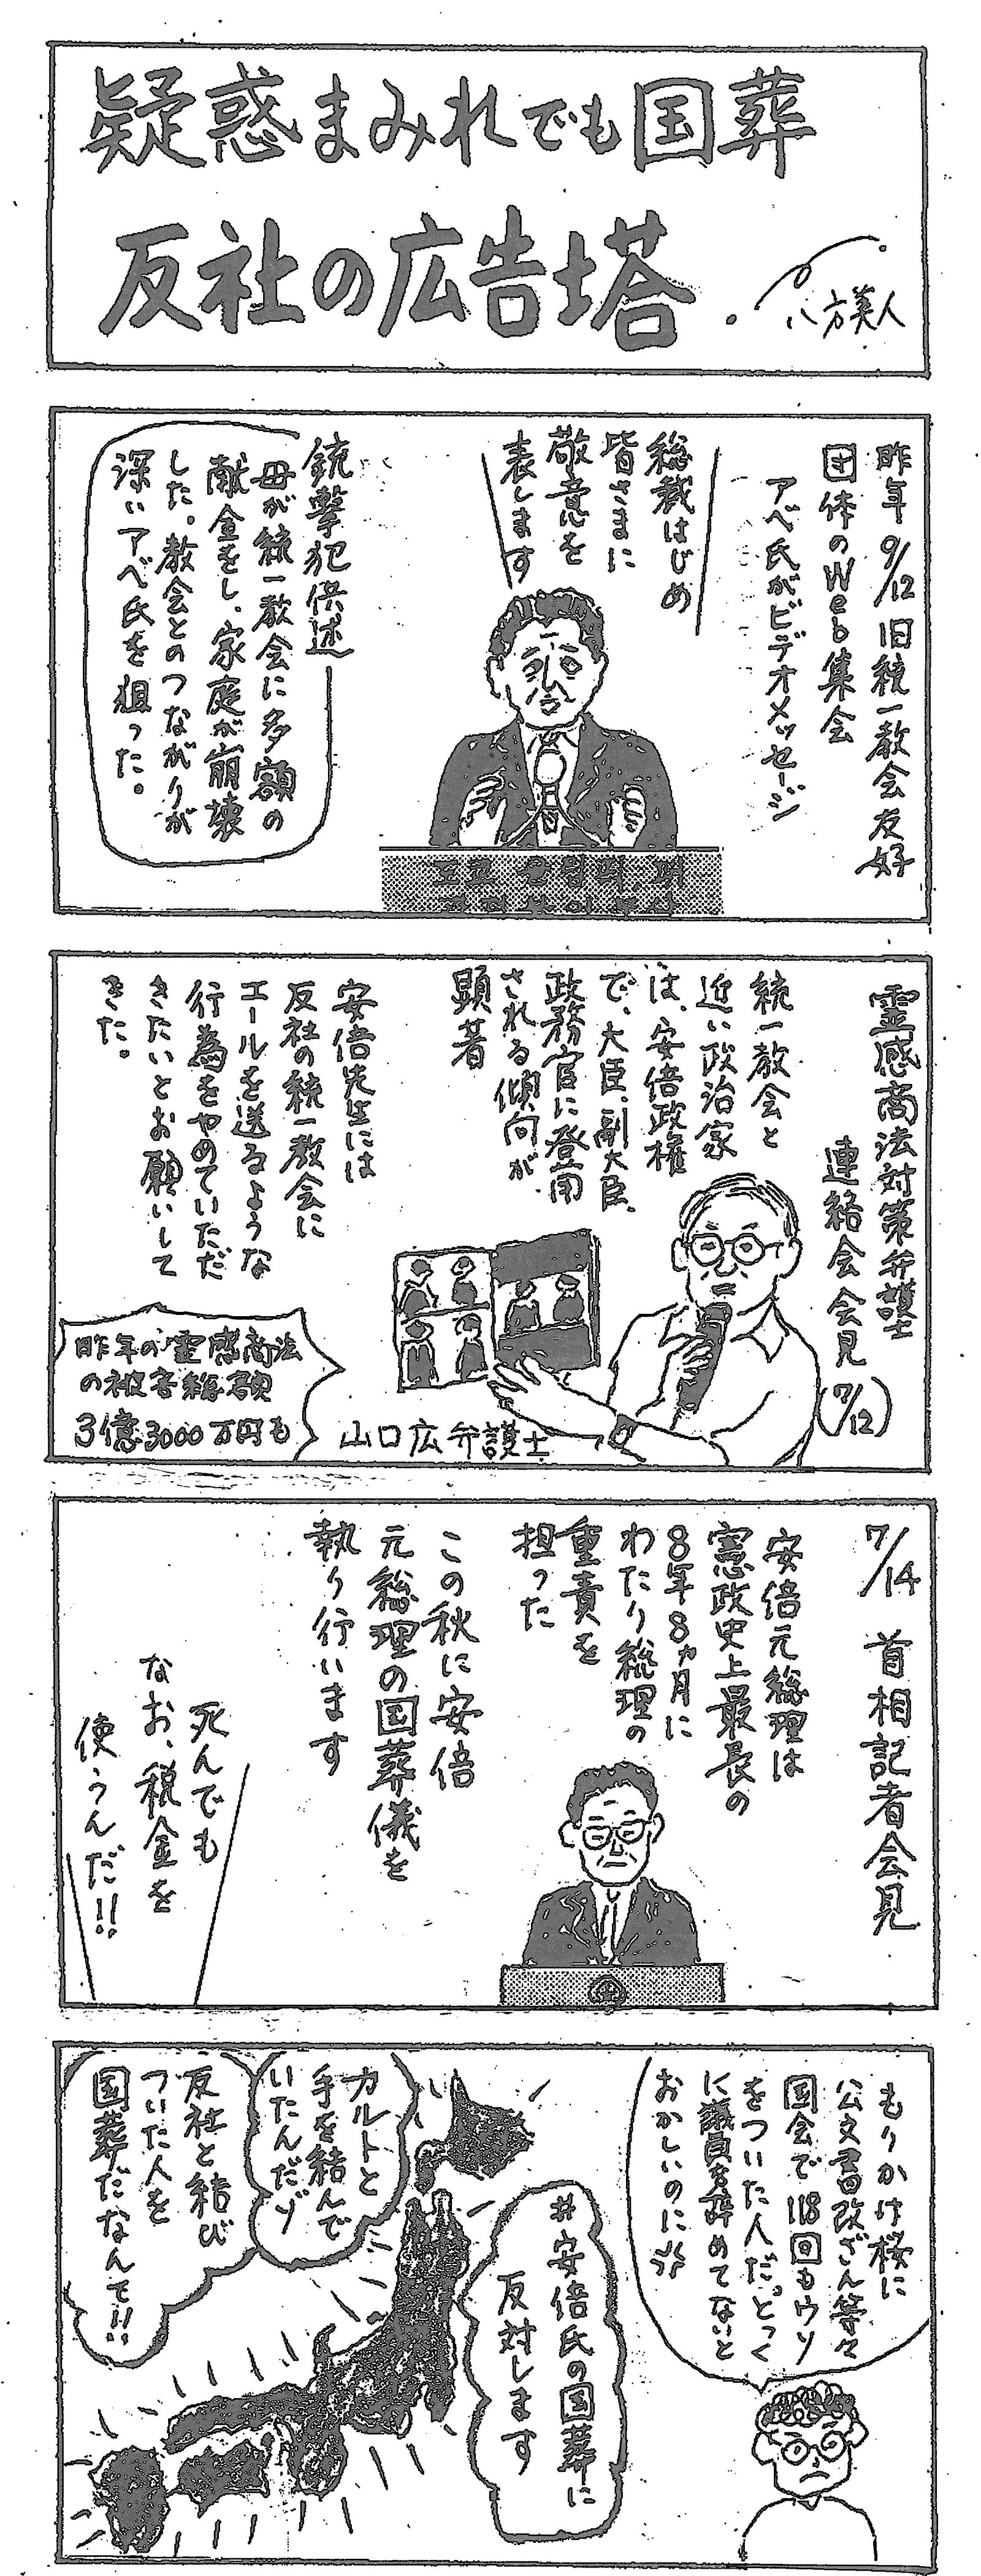 疑惑まみれでも国葬
反社の広告塔
八方美人
昨年9/12旧統一教会友好
団体のWeb集会
アベ氏がビデオメッセージ
総裁はじめ
皆さまに
敬意を
表します
銃撃犯供述
母が統一教会に多額の
献金をし、家庭が崩壊
した。教会とのつながりが
深いアベ氏を狙った。
霊感商法対策弁護士
連絡会会見(7/12)
統一教会と
近い政治家
は、安倍政権
で、大臣、副大臣、
政務官に登用
される傾向が
顕著
安倍先生には
反社の統一教会に
エールを送るような
行為をやめていただ
きたいとお願いして
きた。
昨年の霊感商法
の被害総額
3億3000万円も
山口広弁護士
7/14 首相記者会見
安倍元総理は
憲政史上最長の
8年8ヵ月に
わたり総理の
重責を
担った
この秋に安倍
元総理の国葬儀を
執り行います
死んでも
なお、税金を
使うんだ!!
もりかけ桜に
公文書改ざん等々
国会で118回もウソ
をついた人だ。とっく
に議員を辞めてないと
おかしいのに
#安倍氏の国葬に
反対します
カルトと
手を結んで
いたんだゾ
反社と結び
ついた人を
国葬だなんて!!